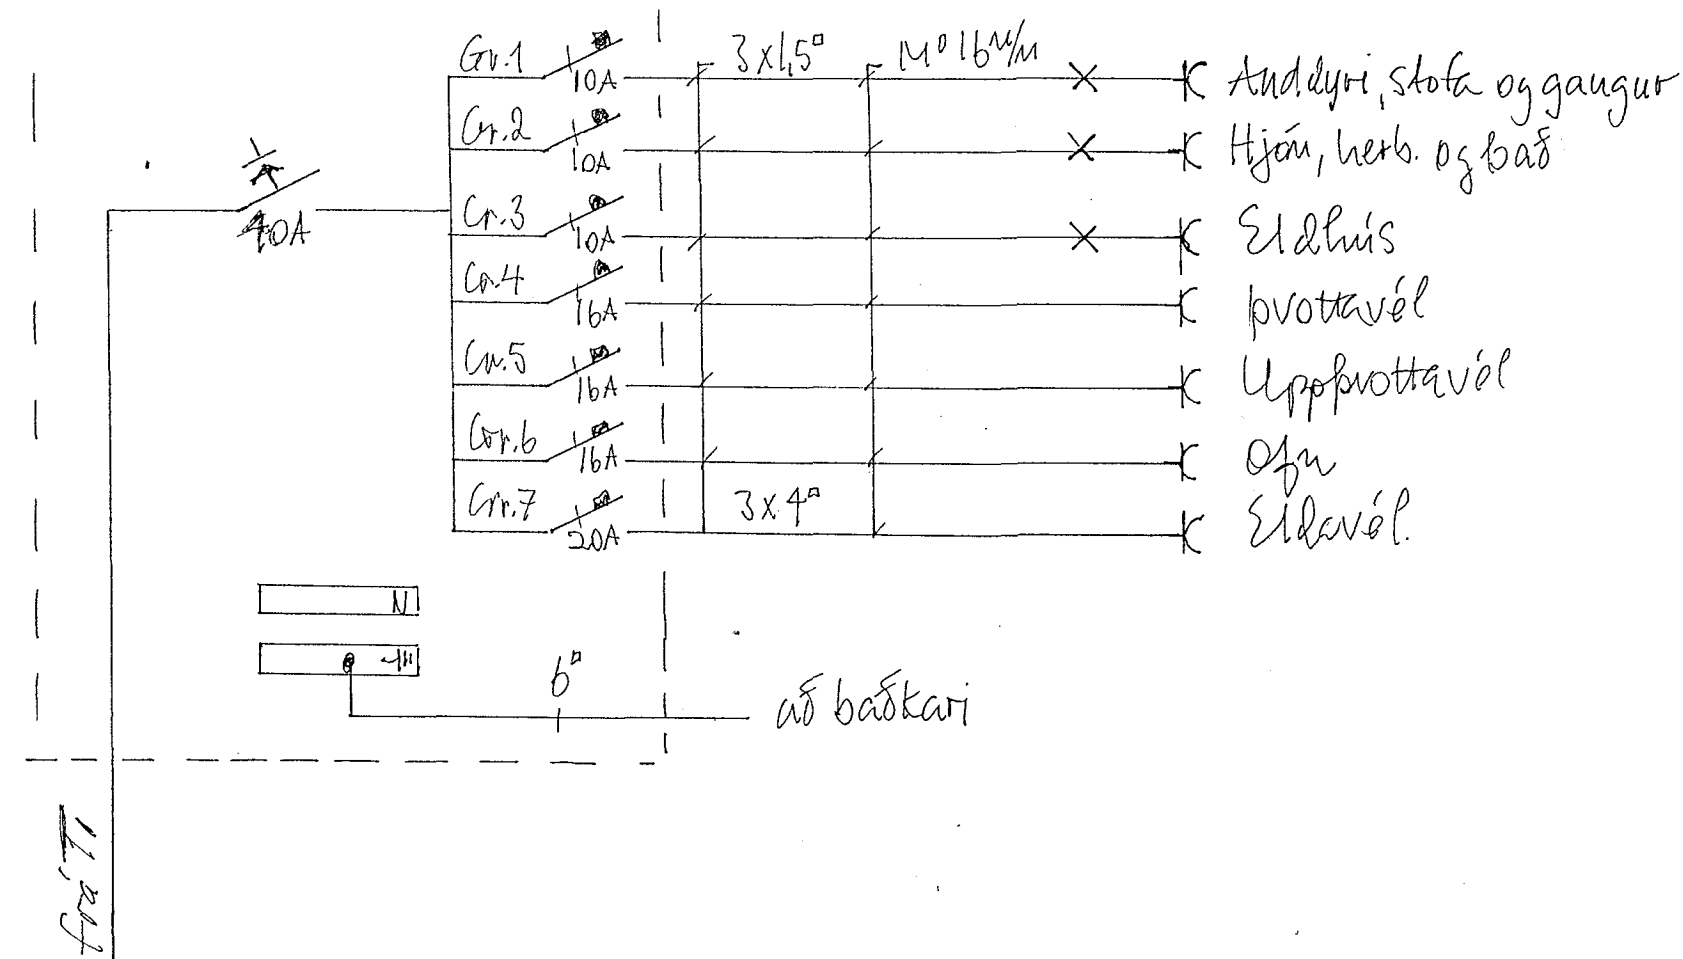 Gr.1 10A 3x1,5□ M° 16 m/m Anddyri, stofa og gangur
Gr.2 10A Hjón, herb. og bað
40A
Gr.3 10A Eldhús
Gr.4 16A þvottavél
Gr.5 16A Uppþvottavél
Gr.6 16A Ofn
Gr.7 20A 3x4□ Eldavél.
N
6□ að baðkari
frá